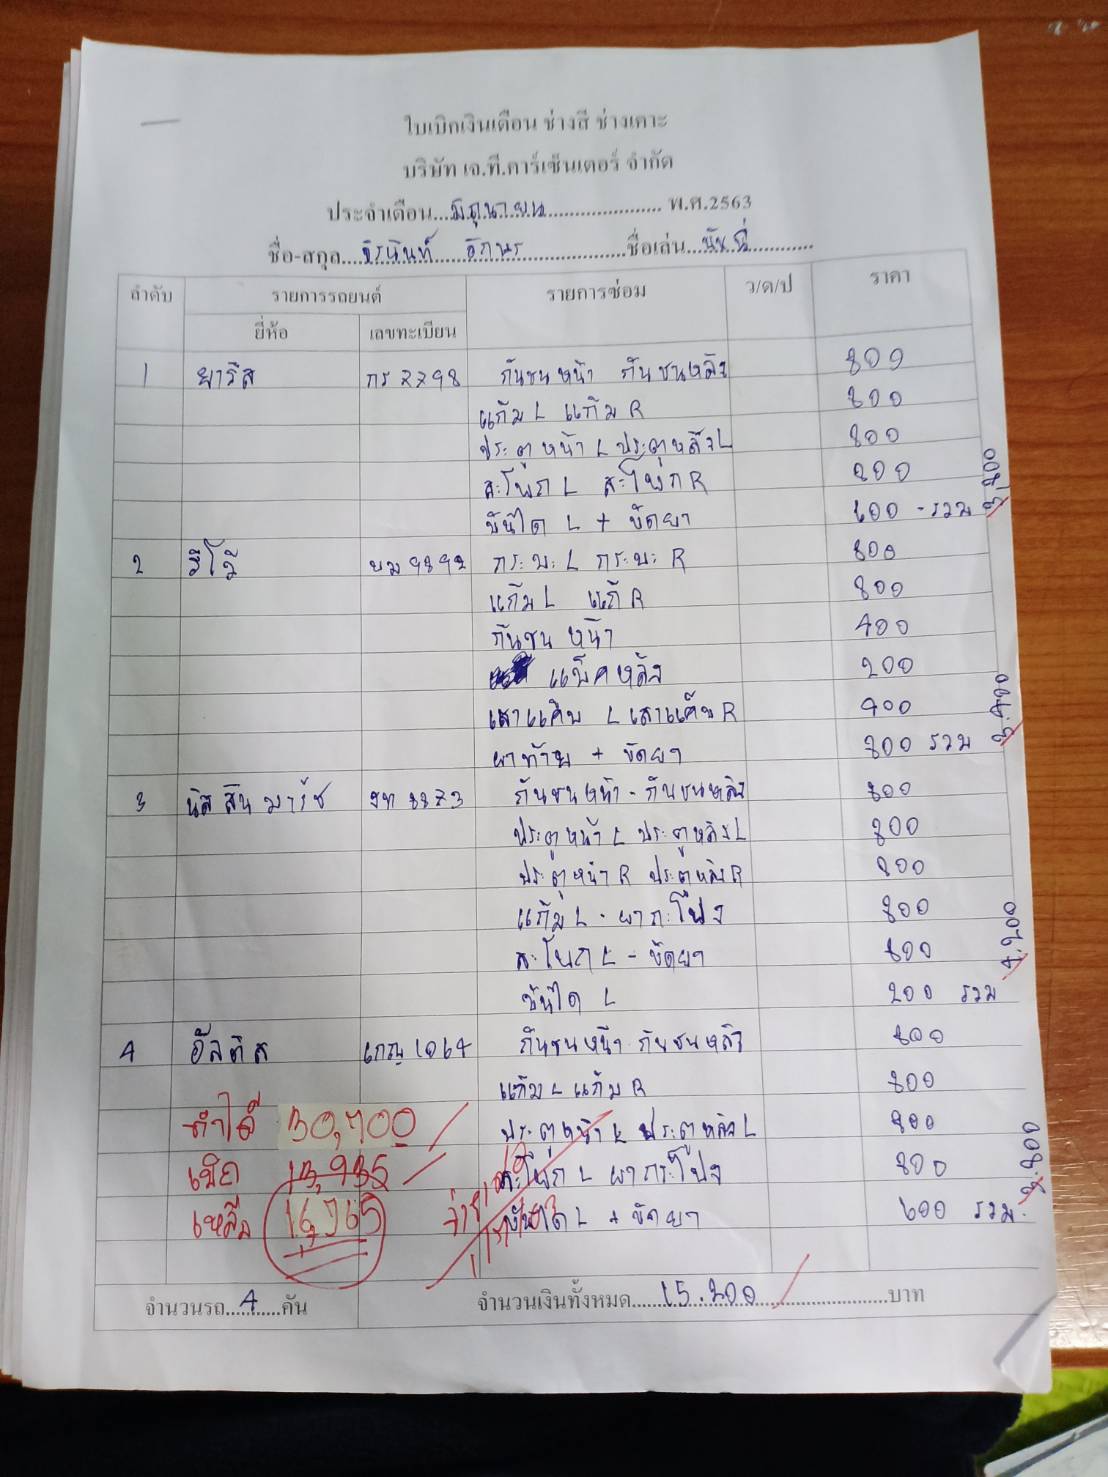 ใบเบิกเงินเดือน ช่างสี ช่างเคาะ
บริษัท เจ.ที.คาร์เซ็นเตอร์ จำกัด
ประจำเดือน...มิถุนายน...................... พ.ศ.2563
ชื่อ-สกุล....จิรนันท์ อักษร....................ชื่อเล่น............
ลำดับ รายการรถยนต์ รายการซ่อม ว/ด/ป ราคา
ยี่ห้อ เลขทะเบียน
1 ยาริส กร 2298 กันชนหน้า กันชนหลัง 800
แก้ม L แก้ม R 800
ประตูหน้า L ประตูหลัง L 800
สะโพก L สะโพก R 800
บันได L + ขัดยา 600 - รวม 3,800
2 วีโก้ กระบะ L กระบะ R 800
แก้ม L แก้ R 800
กันชน หน้า 400
แพ็คหลัง 200
เสาแค็บ L เสาแค็บ R 400
ฝาท้าย + ขัดยา 800 รวม 3.400
3 นิสสัน มาร์ช กันชนหน้า - กันชนหลัง 800
ประตูหน้า L ประตูหลัง L 800
ประตูหน้า R ประตูหลัง R 800
แก้ม L - ฝากะโปง 800
สะโพก L - ขัดยา 800
บันได L 200 รวม 4.200
4 อัลติส 1064 กันชนหน้า กันชนหลัง 800
แก้ม L แก้ม R 800
ทำได้ 30,700 ประตูหน้า L ประตูหลัง L 800
เบิก 13,935 สะโพก L ฝากะโปง 800
เหลือ 16,765 บันได L + ขัดยา 600 รวม. 3.800
จำนวนรถ....4.......คัน จำนวนเงินทั้งหมด........15.200........................บาท